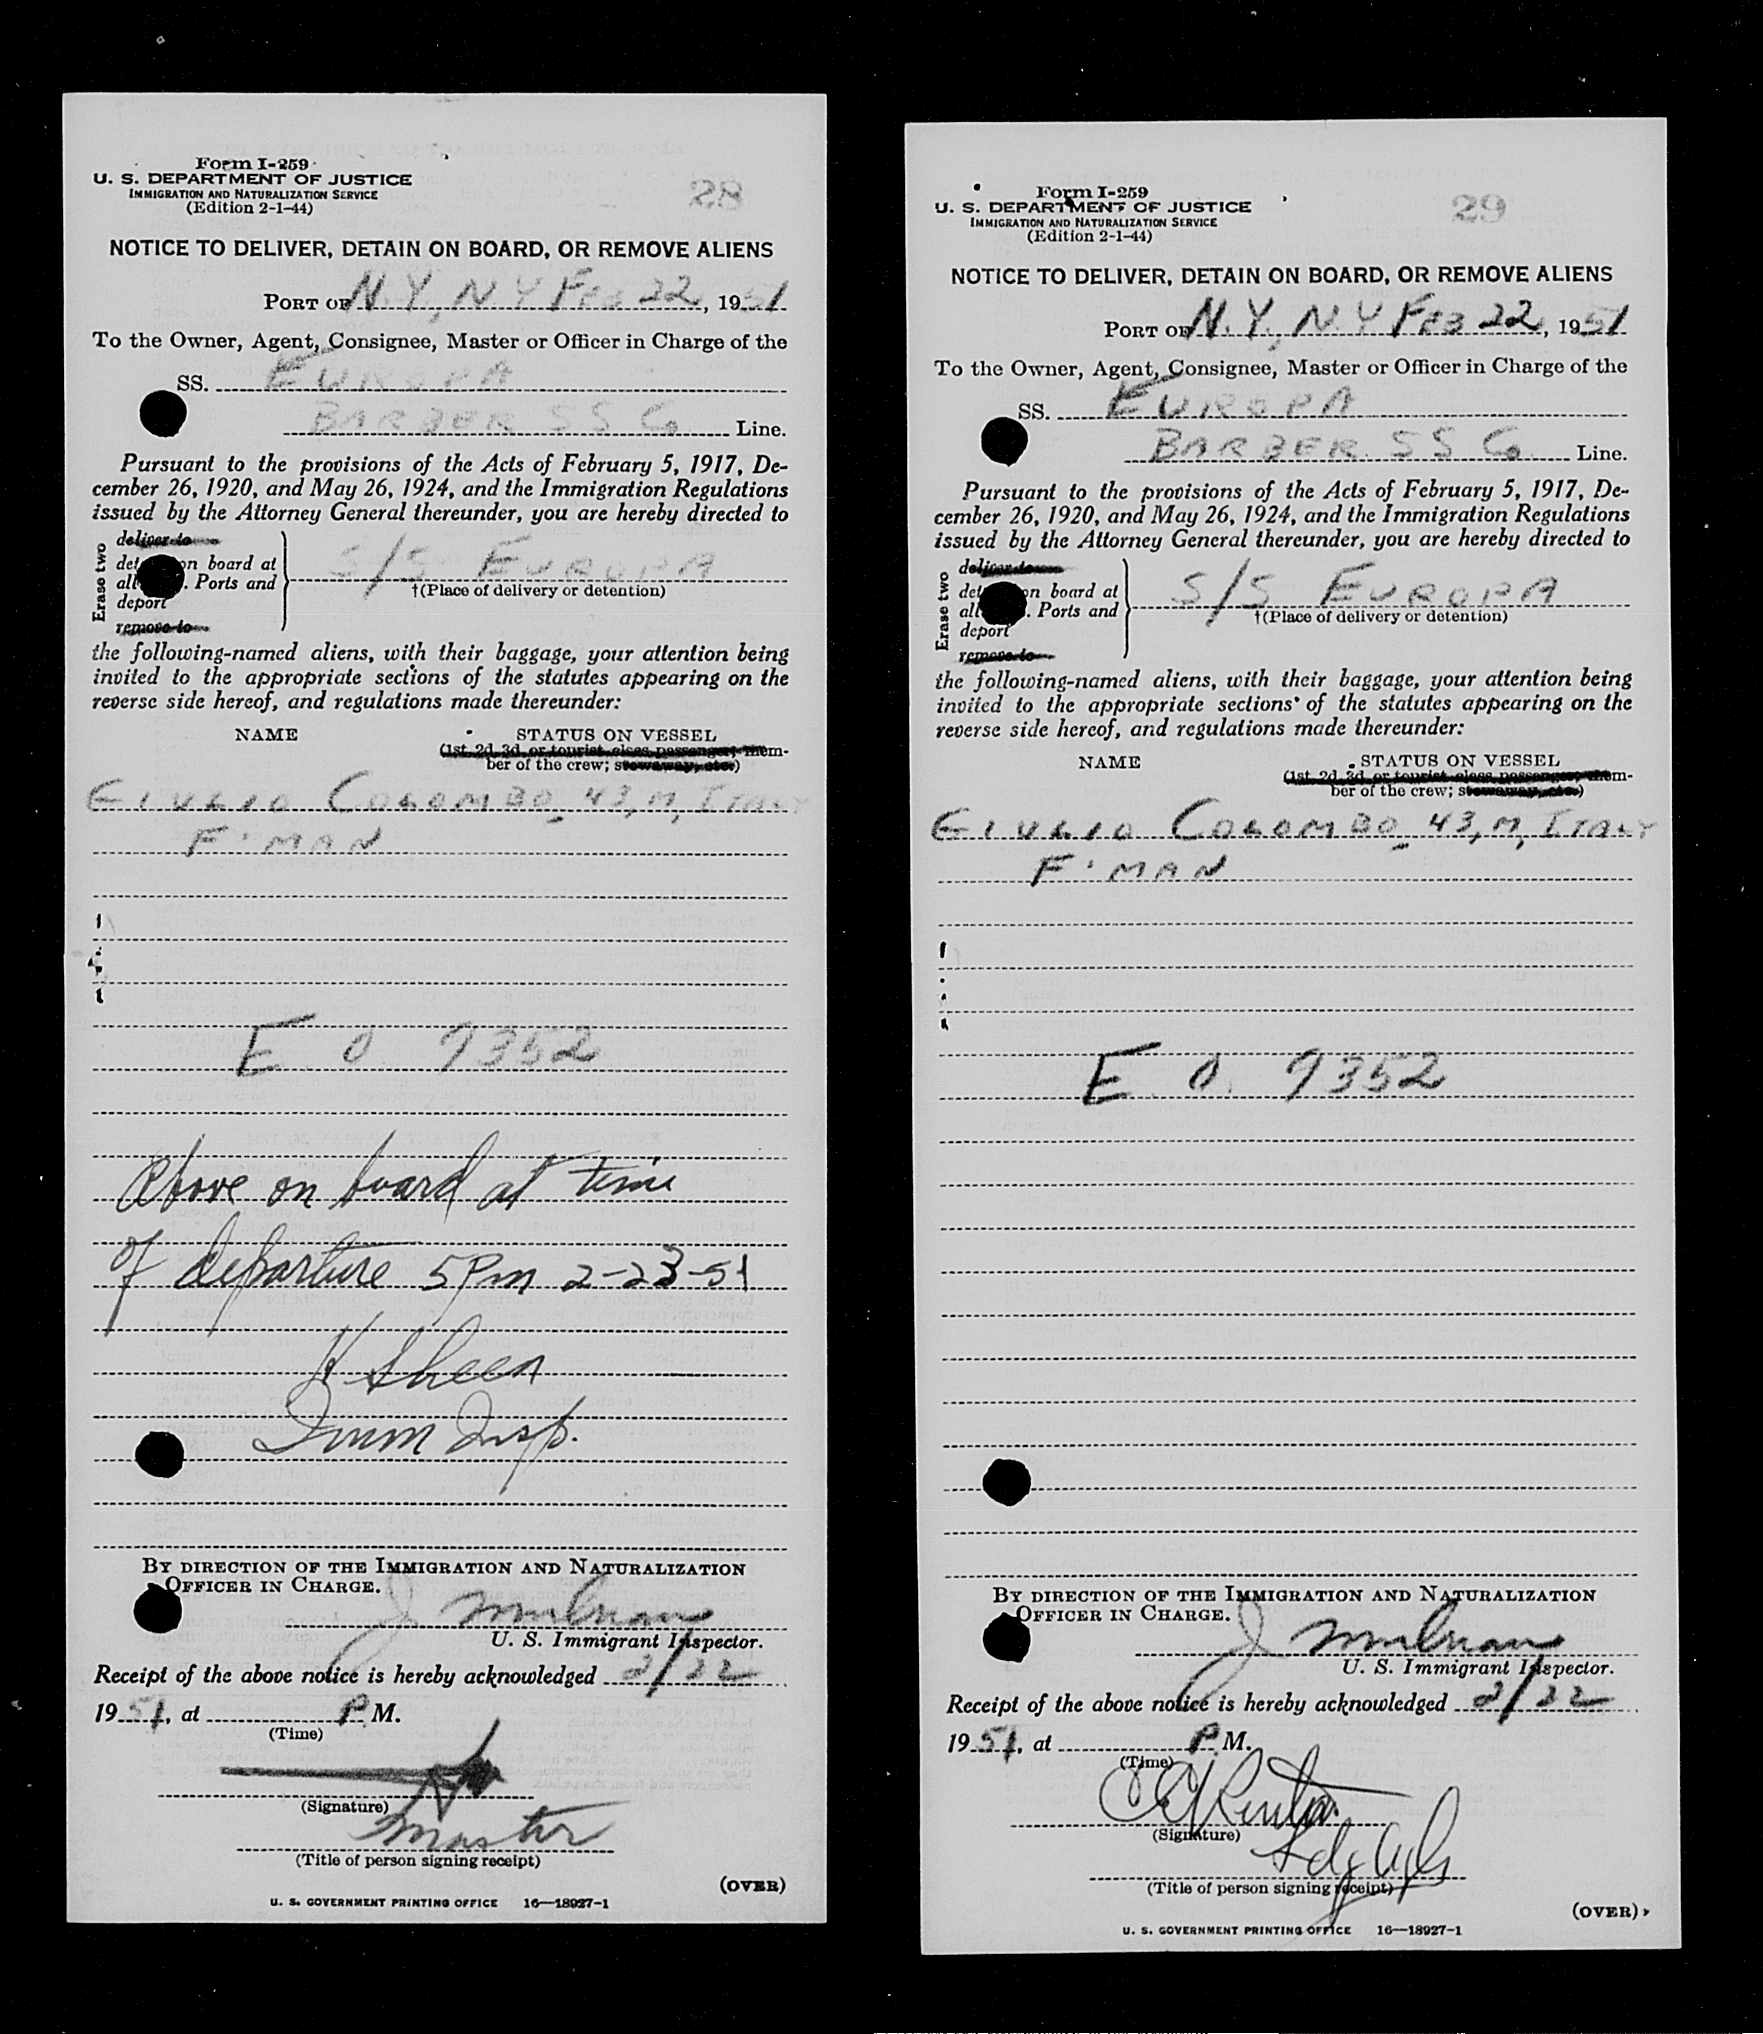 Form I-259
U. S. DEPARTMENT OF JUSTICE
IMMIGRATION AND NATURALIZATION SERVICE
(Edition 2-1-44)
28
NOTICE TO DELIVER, DETAIN ON BOARD, OR REMOVE ALIENS
PORT OF N.Y, N Y FEB 22, 1951
To the Owner, Agent, Consignee, Master or Officer in Charge of the
SS. EUROPA
BARBER SS Co Line.
Pursuant to the provisions of the Acts of February 5, 1917, De-
cember 26, 1920, and May 26, 1924, and the Immigration Regulations
issued by the Attorney General thereunder, you are hereby directed to
Erase two
deliver to
det on board at
all . Ports and
deport
remove to
S/S EUROPA
†(Place of delivery or detention)
the following-named aliens, with their baggage, your attention being
invited to the appropriate sections of the statutes appearing on the
reverse side hereof, and regulations made thereunder:
NAME STATUS ON VESSEL
(1st, 2d, 3d, or tourist class passenger; mem-
ber of the crew; stowaway, etc.)
GIULIO COLOMBO 43, M, ITALY
F'MAN
E O 9352
Above on board at time
of departure 5 Pm 2-23-51
H Sheen
Imm Insp.
BY DIRECTION OF THE IMMIGRATION AND NATURALIZATION
OFFICER IN CHARGE.
J
U. S. Immigrant Inspector.
Receipt of the above notice is hereby acknowledged 2/22
1951, at P.M.
(Time)
(Signature)
Master
(Title of person signing receipt)
(OVER)
U. S. GOVERNMENT PRINTING OFFICE 16—18927-1
Form I-259
U. S. DEPARTMENT OF JUSTICE
IMMIGRATION AND NATURALIZATION SERVICE
(Edition 2-1-44)
29
NOTICE TO DELIVER, DETAIN ON BOARD, OR REMOVE ALIENS
PORT OF N.Y, N.Y FEB 22, 1951
To the Owner, Agent, Consignee, Master or Officer in Charge of the
SS. EUROPA
BARBER SS Co Line.
Pursuant to the provisions of the Acts of February 5, 1917, De-
cember 26, 1920, and May 26, 1924, and the Immigration Regulations
issued by the Attorney General thereunder, you are hereby directed to
Erase two
deliver to
det on board at
all . Ports and
deport
remove to
S/S EUROPA
†(Place of delivery or detention)
the following-named aliens, with their baggage, your attention being
invited to the appropriate sections of the statutes appearing on the
reverse side hereof, and regulations made thereunder:
NAME STATUS ON VESSEL
(1st, 2d, 3d, or tourist class passenger; mem-
ber of the crew; stowaway, etc.)
GIULIO COLOMBO 43, M, ITALY
F'MAN
E O. 9352
BY DIRECTION OF THE IMMIGRATION AND NATURALIZATION
OFFICER IN CHARGE.
J
U. S. Immigrant Inspector.
Receipt of the above notice is hereby acknowledged 2/22
1951, at P.M.
(Time)
(Signature)
(Title of person signing receipt)
(OVER)
U. S. GOVERNMENT PRINTING OFFICE 16—18927-1